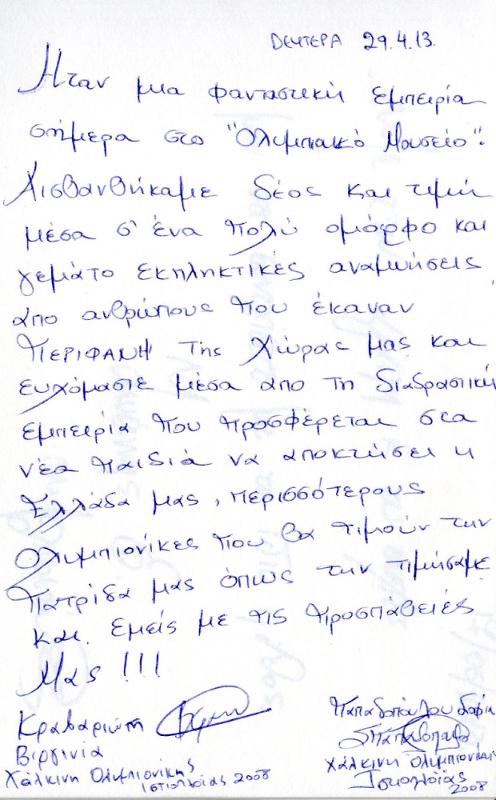 ΔΕΥΤΕΡΑ 29.4.13.
Ηταν μια φανταστική εμπειρία
σήμερα στο "Ολυμπιακό Μουσείο".
Αισθανθήκαμε δέος και τιμή
μέσα σ' ένα πολύ ομόρφο και
γεμάτο εκπληκτικές αναμνήσεις
απο ανθρώπους που έκαναν
ΠΕΡΙΦΑΝΗ της χώρας μας και
ευχόμαστε μέσα απο τη διαδραστική
εμπειρία που προσφέρεται στα
νέα παιδιά να αποκτήσει η
Ελλάδα μας, περισσότερους
Ολυμπιονίκες που θα τιμούν την
πατρίδα μας όπως την τιμήσαμε
και εμείς με τις προσπάθειές
μας !!!
Κραβαριώτη
Βιργινία
Χάλκινη Ολυμπιονίκης
ιστιοπλοΐας 2008
Παπαδοπούλου Σοφία
Χάλκινη Ολυμπιονίκης
Ιστιοπλοΐας
2008